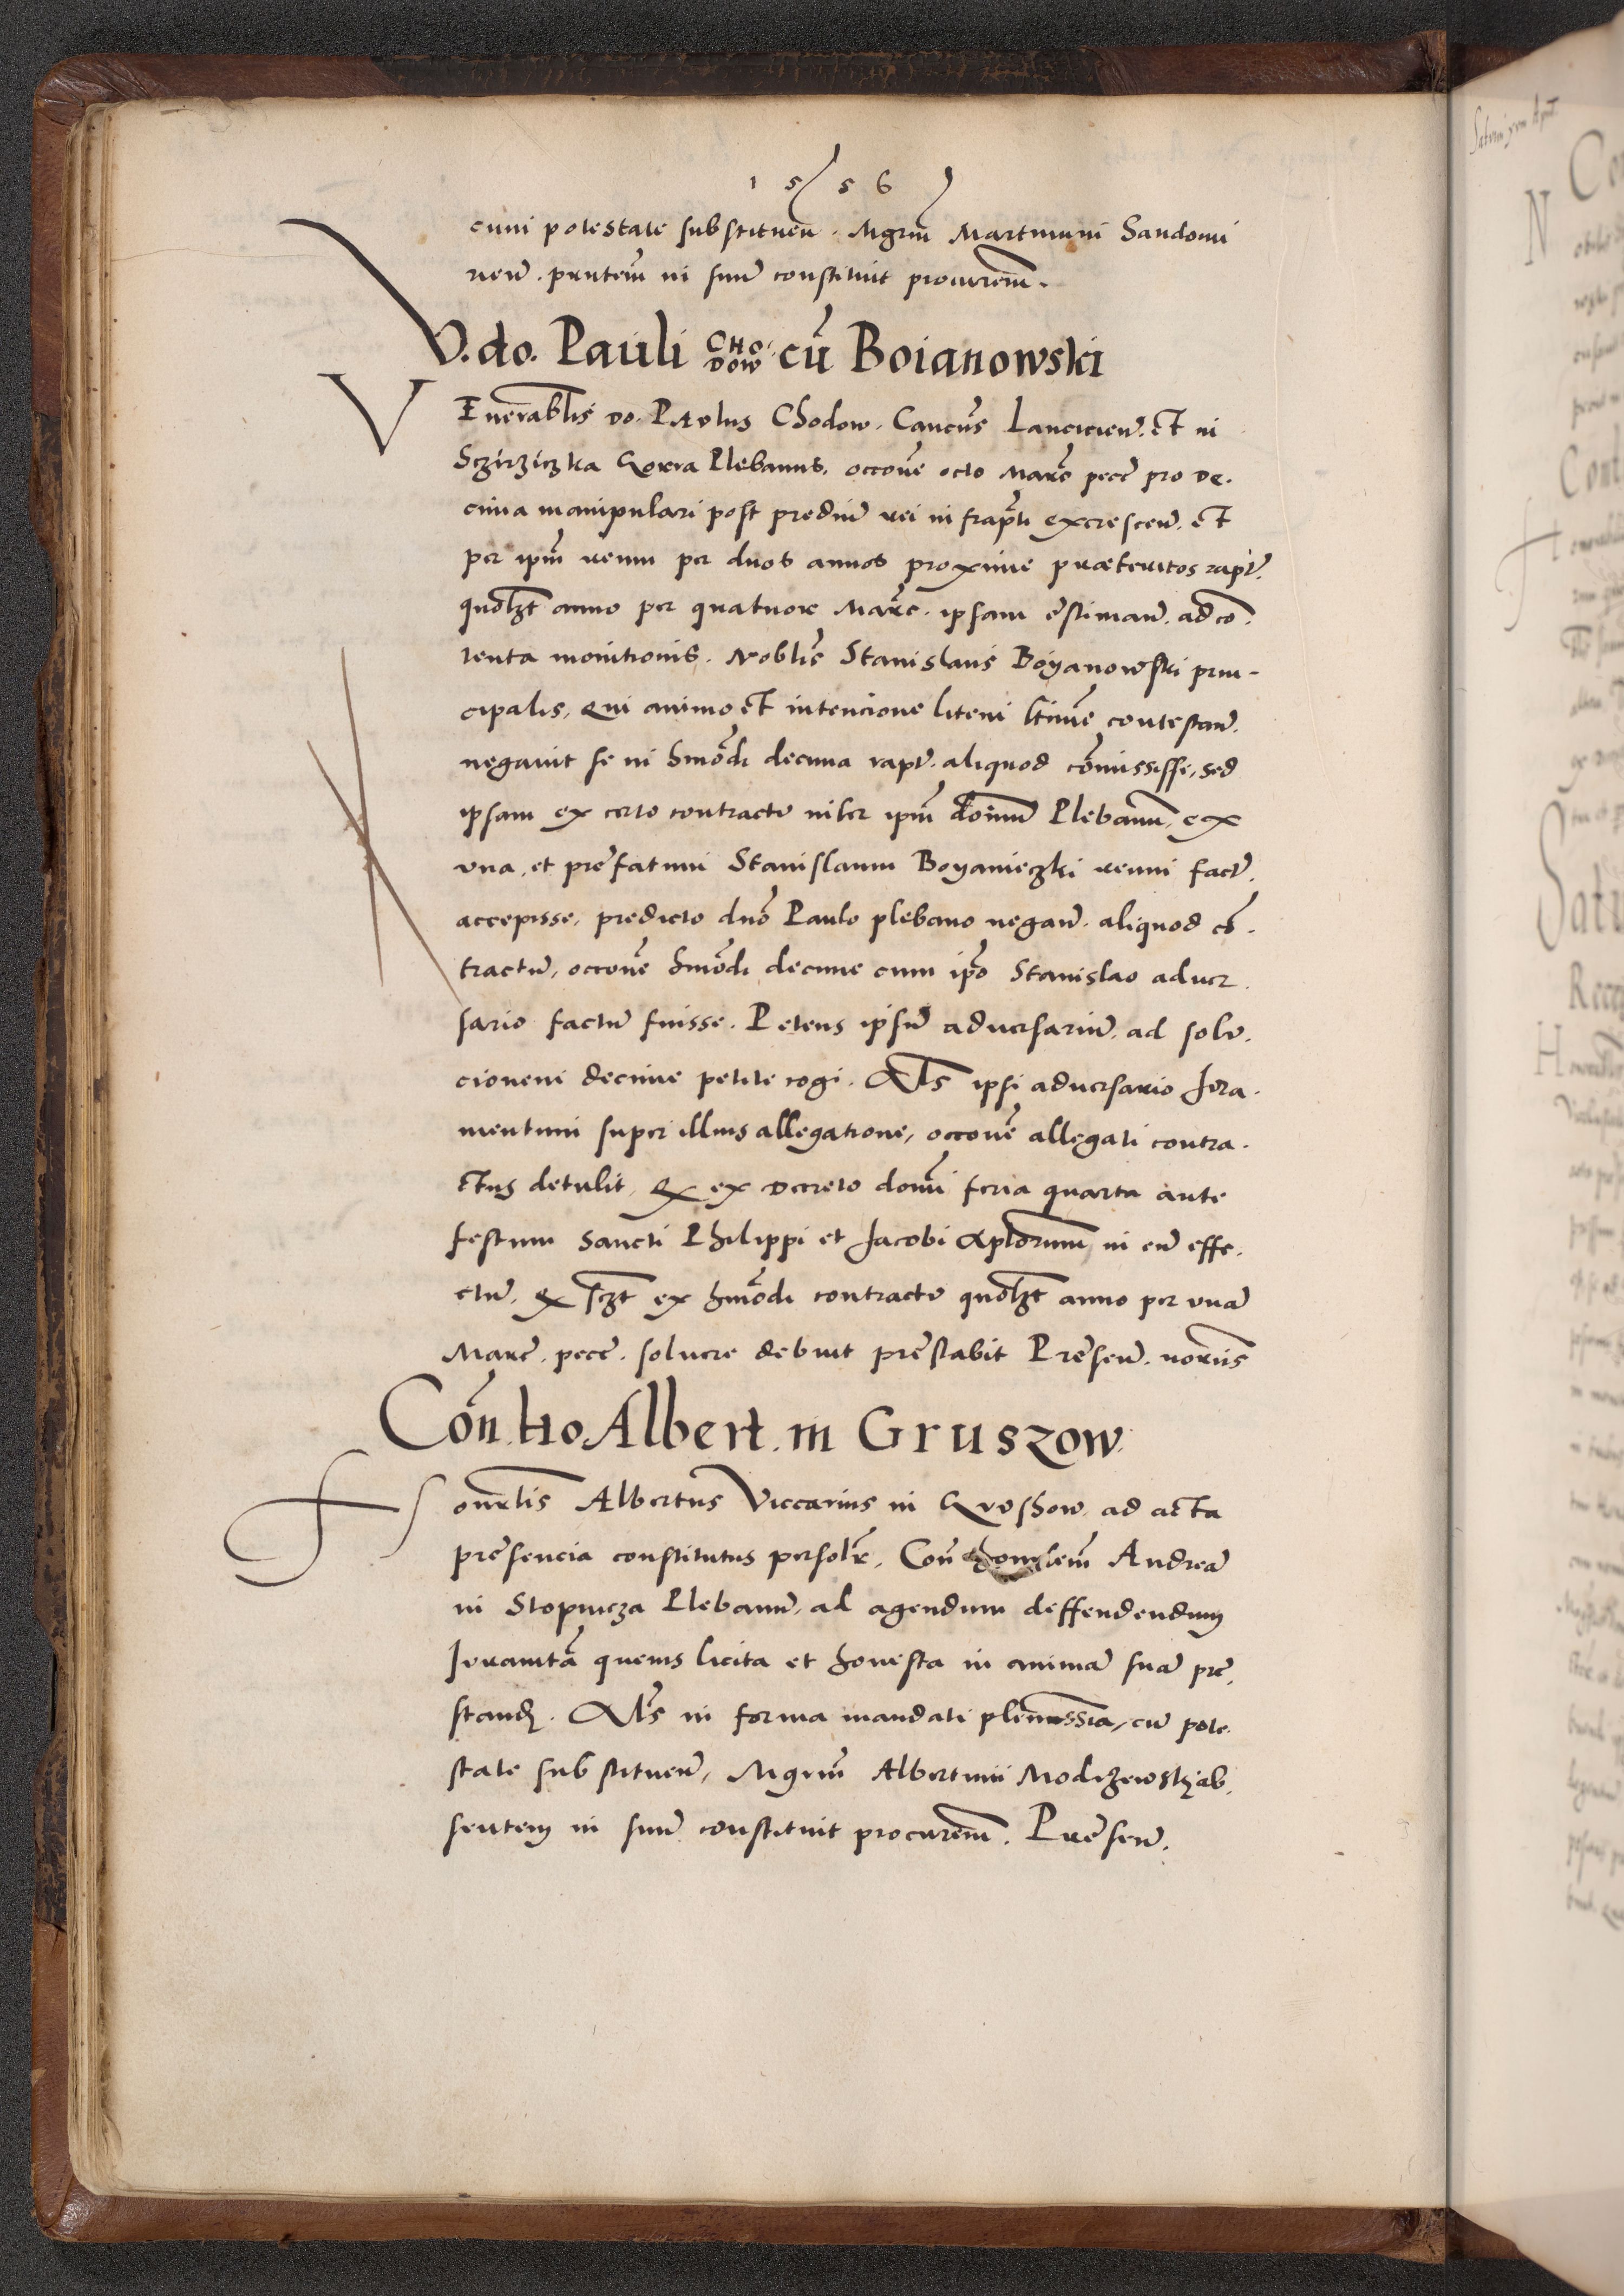 1 5 5 6
cum potestate substituen̄. Mgrm̄ Martinum Sandomi
rien̄. pn̄tem̄ in suū constituit procurem̄.
V. do. Pauli CHO DOW cū Boianowski
VEnerablis̄ do. Paulus Chodow. Cancūs Lancicien̄. et in
Sczirziczka Gorra Plebanus. occoe̅ octo Marc̄ pecē pro de.
cima manipulari post prediū rei infrapti excrescen̄. et
per ipm̄ reum per duos annos proxime praeteritos rapt̄.
quolzt̄ anno per quatuor Marc̄. ipsam estiman̄. ad con̄.
tenta monitionis. Noblis̄ Stanislaus Boyanowski prin-
cipalis, Qui animo et intencione litem ltime̅ contestan̄.
negavit se in hmōdi decima rapt̄. aliquod cōmississe, sed
ipsam ex certo contractu inter ipm̄ dominū Plebanū, ex
una, et prefatum Stanislaum Boyanieczki reum fact̄.
accepisse, predicto dno̅ Paulo plebano negan̄. aliquod cō.
tractū, occoe̅ hmōdi decime cum ipo̅ Stanislao adver.
sario factū fuisse. Petens ipsū adversariū. ad solu.
cionem decime petite cogi. Als̄ ipsi adversario Jura.
mentum super illius allegatione, occoe̅ allegati contra.
ctus detulit, Qd ex decreto domi̅ feria quarta ante
festum Sancti Philippi et Jacobi Aplorum in eū effe.
ctū, Qd sczt̄ ex hmōdi contractu quolzt̄ anno per unā
Marc̄. pecē. solvere debuit prestabit Presen̄. noriis̄
Con. ho Albert. in Gruszow.
Honorlis̄ Albertus Viccarius in Gruschow. ad acta
presencia constitutus personlr̄, Con̄ Andreā
in Stopnicza Plebanū, ad agendum deffendendum
Juramtā quevis licita et honesta in animā suā pre.
stand. Als̄ in forma mandati plenissīa, cū pote.
state substituen̄, Mgrum̄ Albertum Modrzewski ab.
sentem in suū constituit procurem̄. Presen̄.